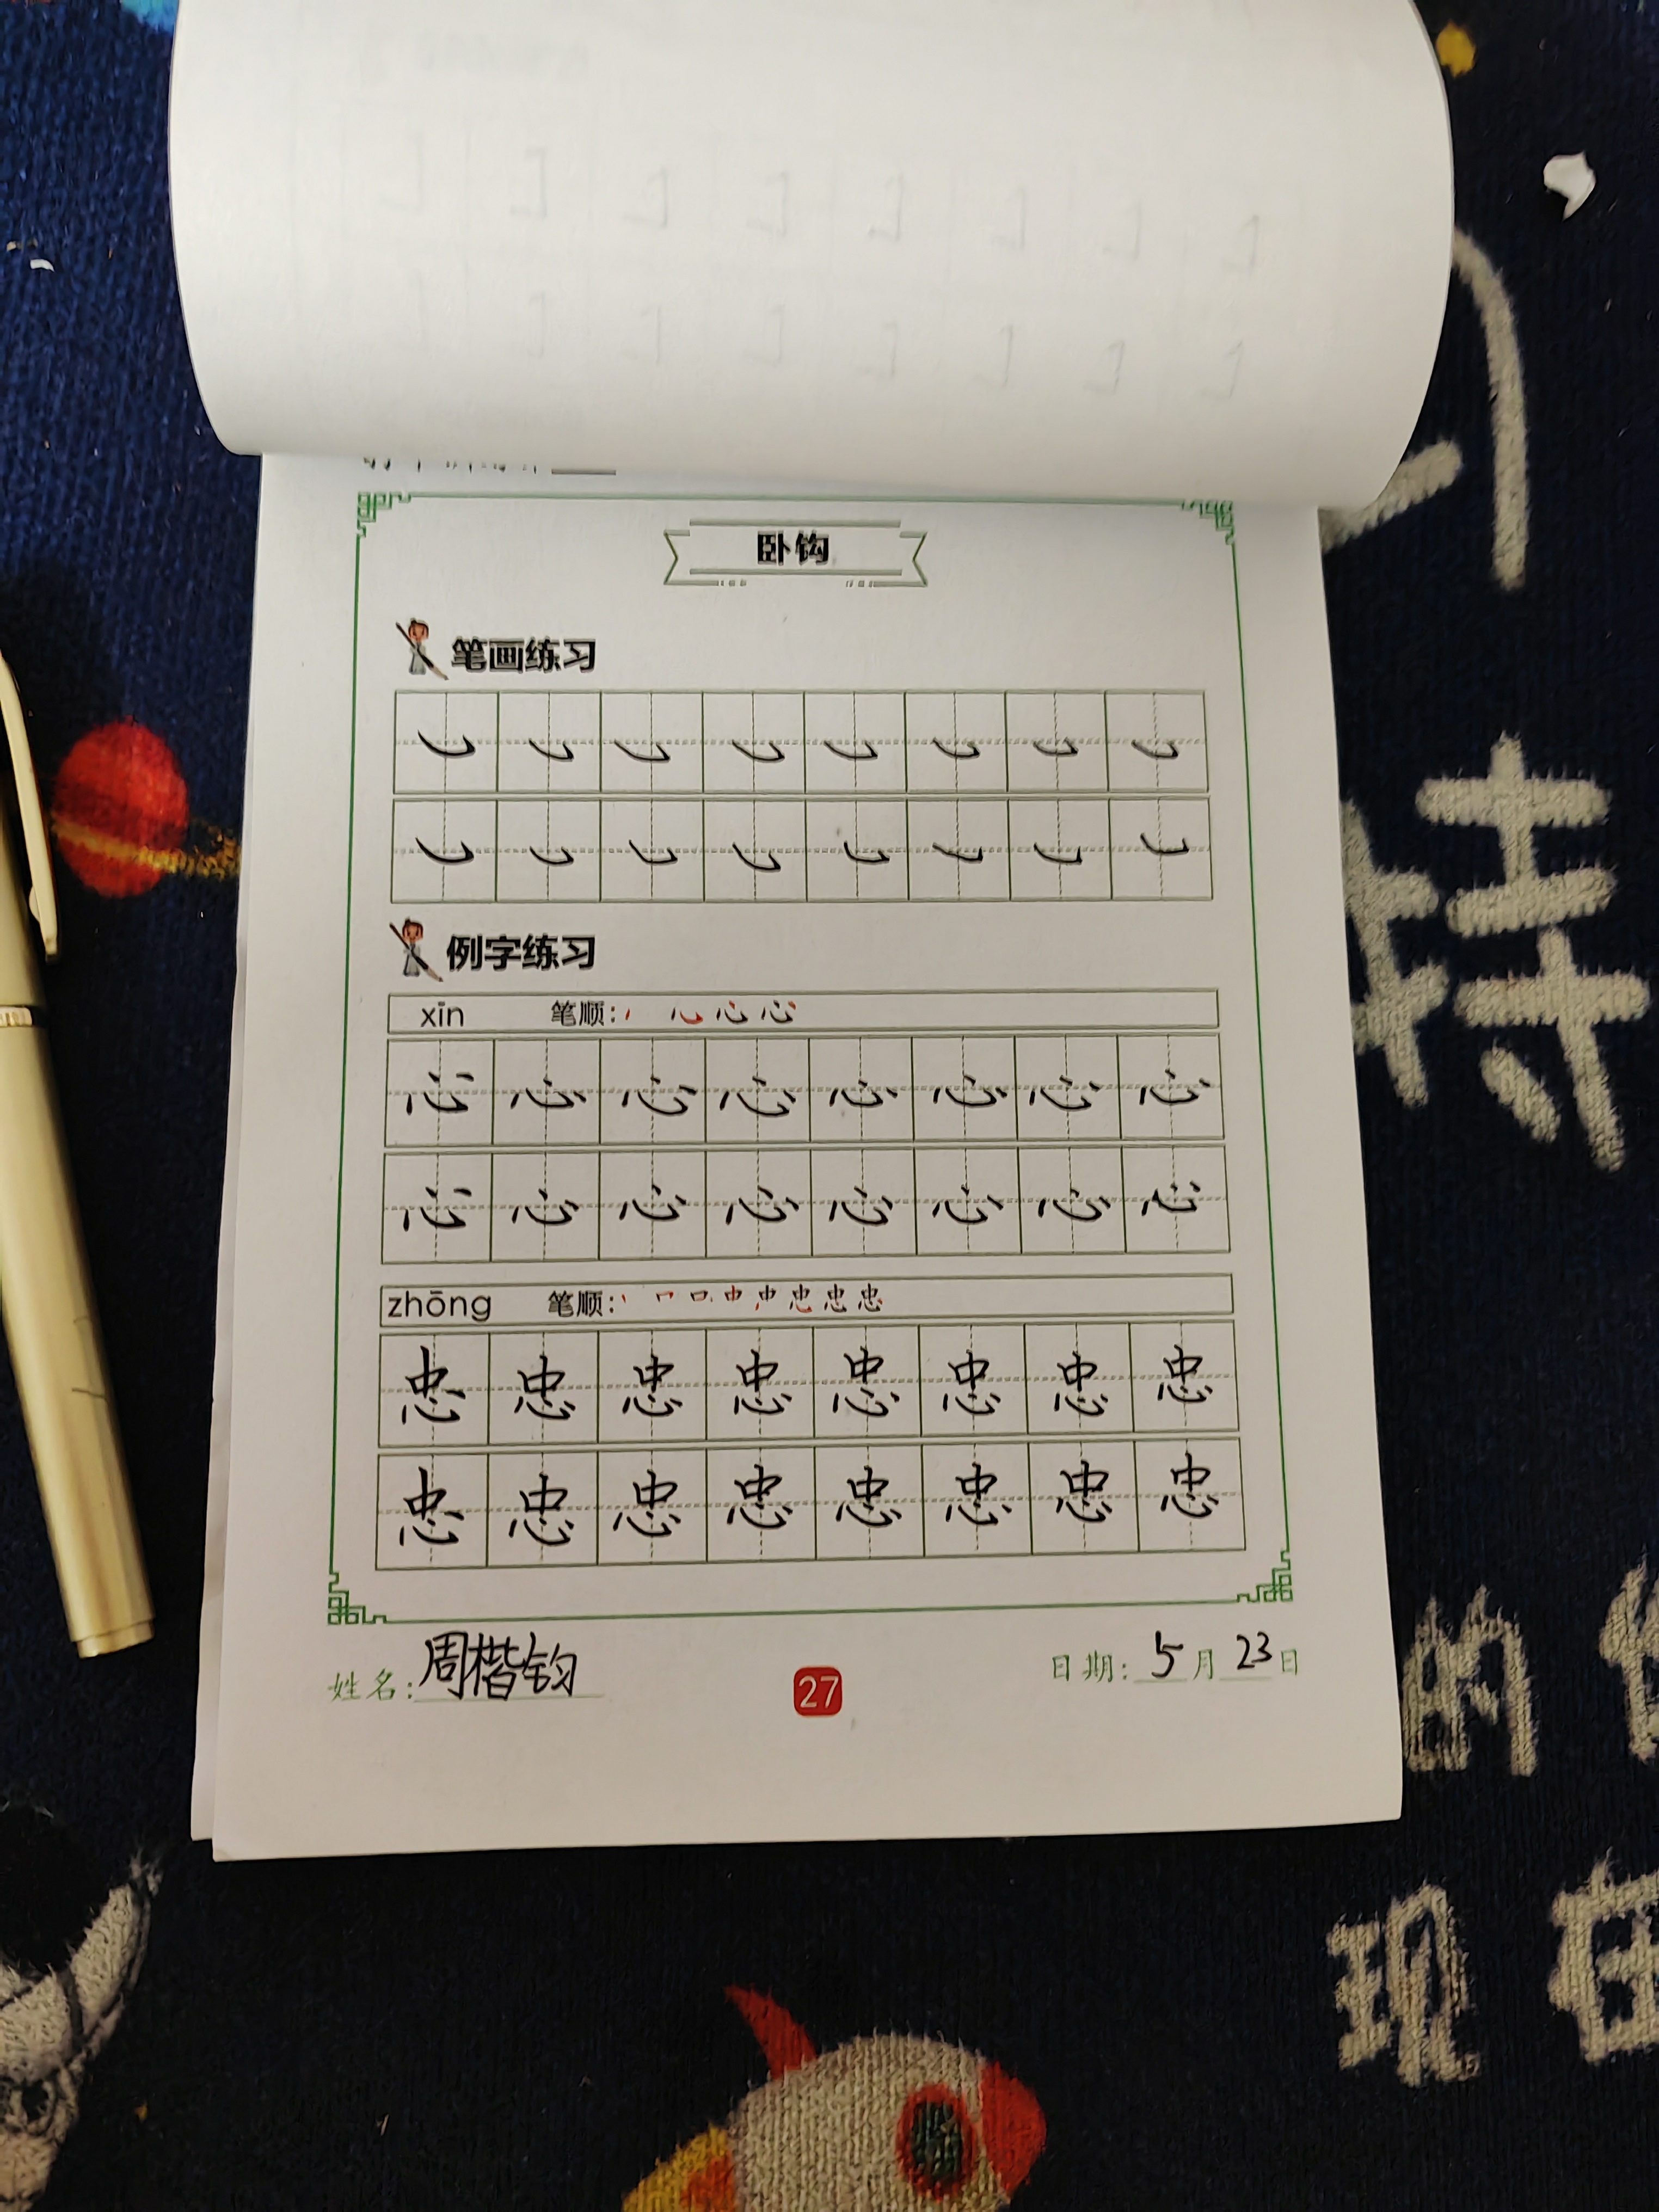 卧钩
笔画练习
例字练习
xīn 笔顺:
心 心 心 心 心 心 心 心
心 心 心 心 心 心 心 心
zhōng 笔顺:
忠 忠 忠 忠 忠 忠 忠 忠
忠 忠 忠 忠 忠 忠 忠 忠
姓名: 周楷钧
27
日期: 5月23日
的
现在